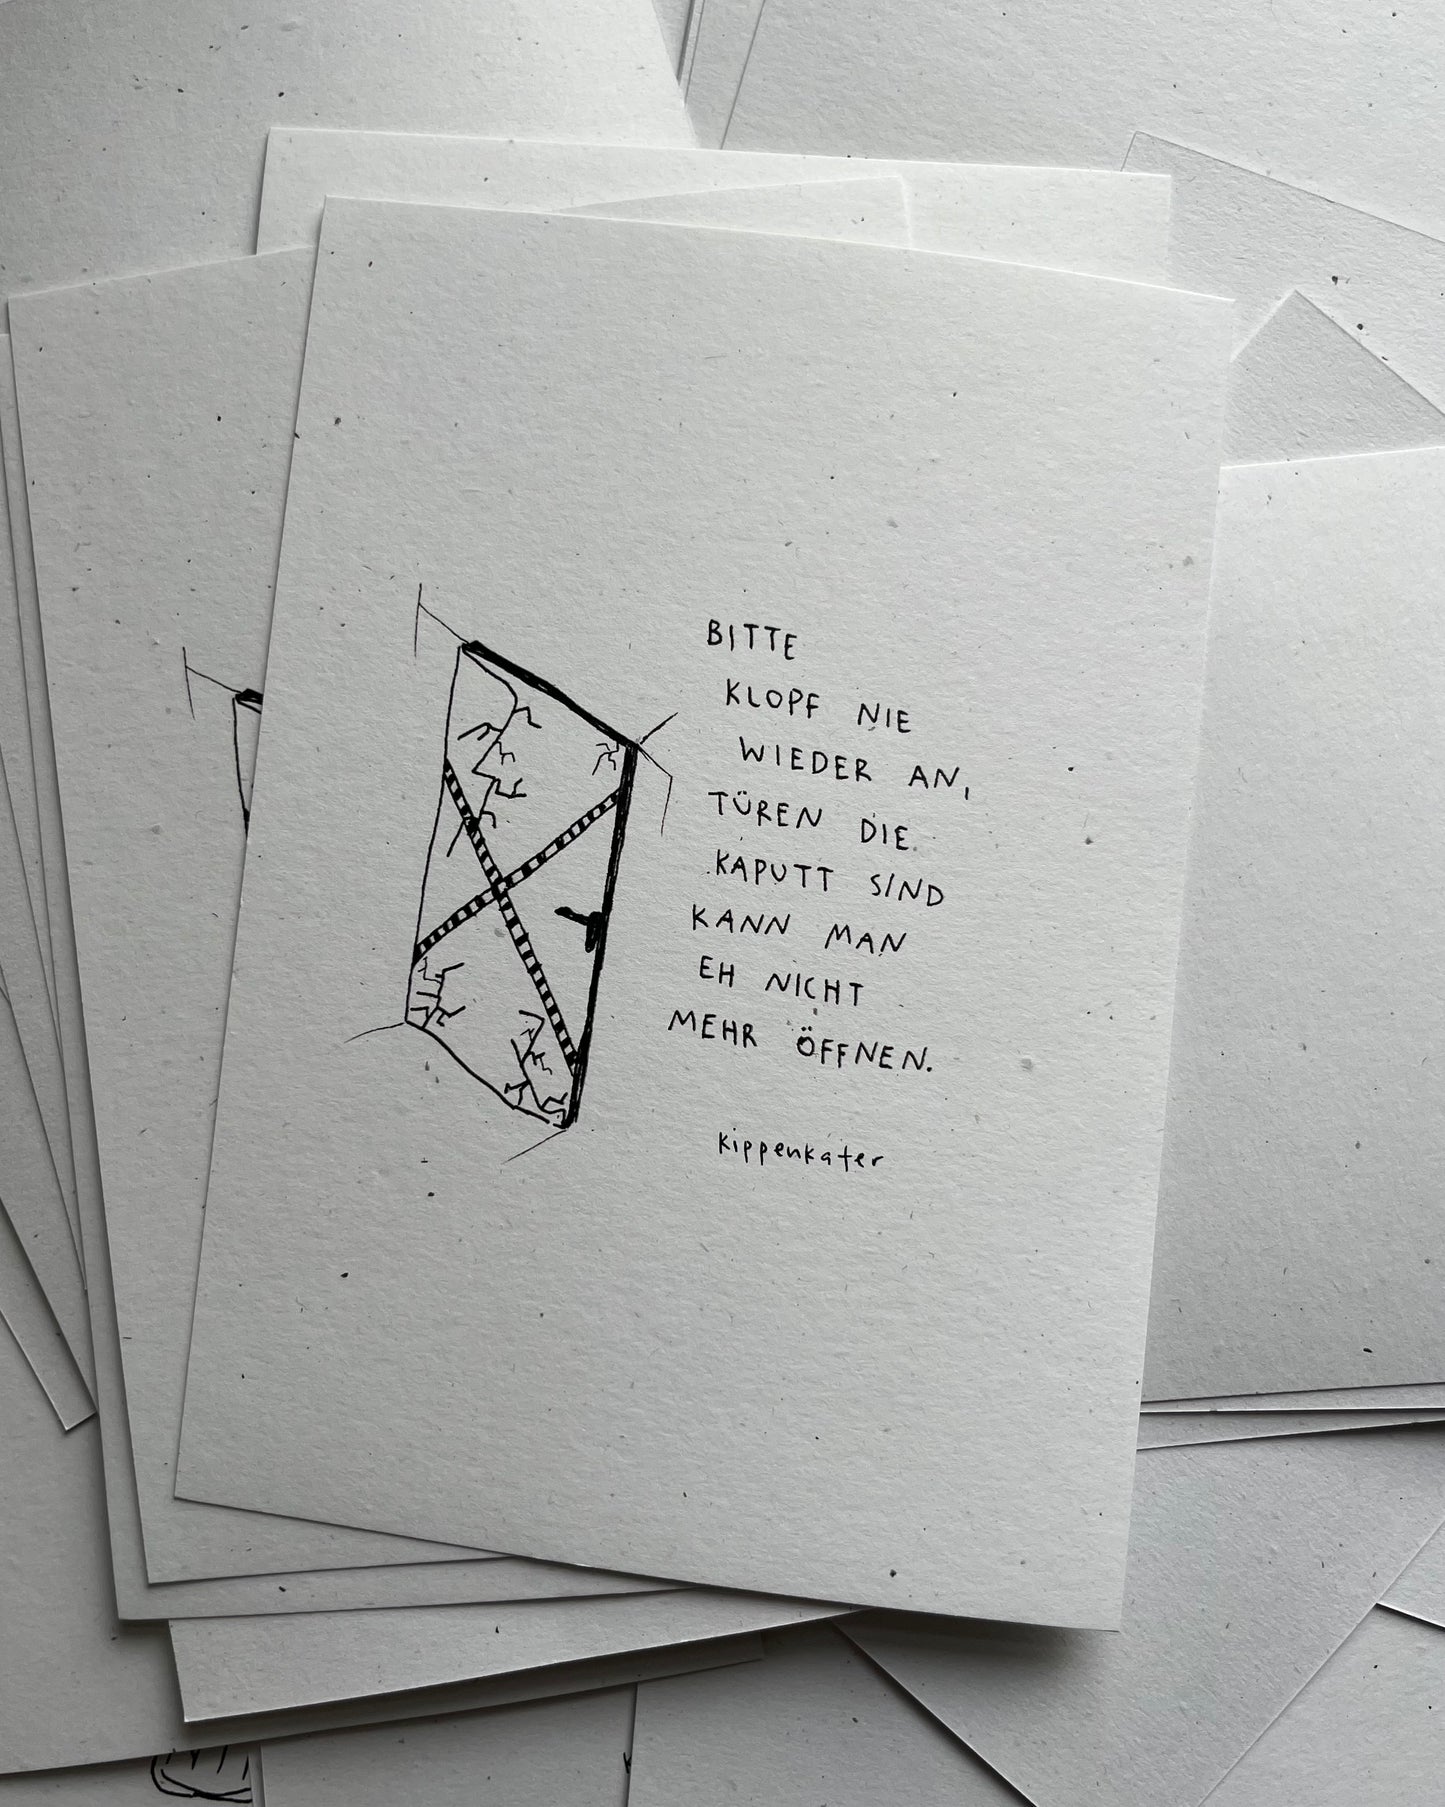 BITTE
KLOPF NIE
WIEDER AN,
TÜREN DIE
KAPUTT SIND
KANN MAN
EH NICHT
MEHR ÖFFNEN.
kippenkater